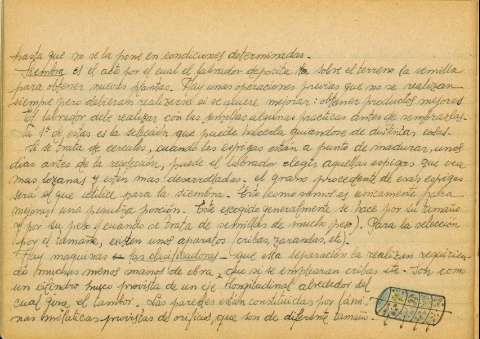 hasta que no se la pone en condiciones determinadas.-
Siembra es el acto por el cual el labrador deposita sobre el terreno la semilla
para obtener nuevas plantas. Hay unas operaciones previas que no se realizan
siempre pero deberían realizarse si se quiere mejorar: obtener productos mejores.
El labrador debe realizar con las semillas algunas prácticas antes de sembrarlas.
La 1ª de estas es la selección que puede hacerla guiándose de distintas cosas.
Si se trata de cereales, cuando las espigas están a punto de madurar, unos
días antes de la recolección, puede el labrador elegir aquellas espigas que vea
mas lozanas y estén mas desarrolladas. El grano procedente de esas espigas
será el que utilice para la siembra. Esto como vemos es unicamente para
una pequeña porción. Este escogido generalmente se hace por su tamaño
y por su peso (cuando se trata de semillas de mucho peso). Para la selección
por el tamaño, existen unos aparatos (cribas, zarandas, etc).
Hay maquinas las clasificadoras - que esta separación la realizan requirien-
do muchas menos manos de obra, que si se emplearan cribas etc. Son como
un cilindro hueco provista de un eje longitudinal alrededor del
cual gira el tambor. Las paredes están constituidas por lámi-
nas metálicas provistas de orificios, que son de diferente tamaño.